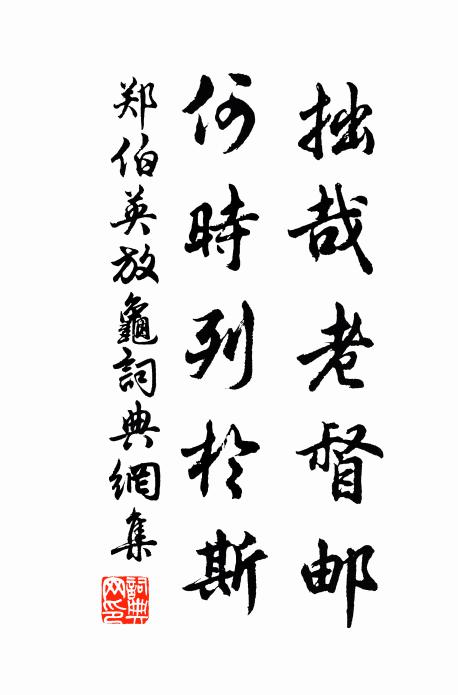 拙哉老督邮
何時列於斯
郑伯英放龜詞典網集
詞典網印